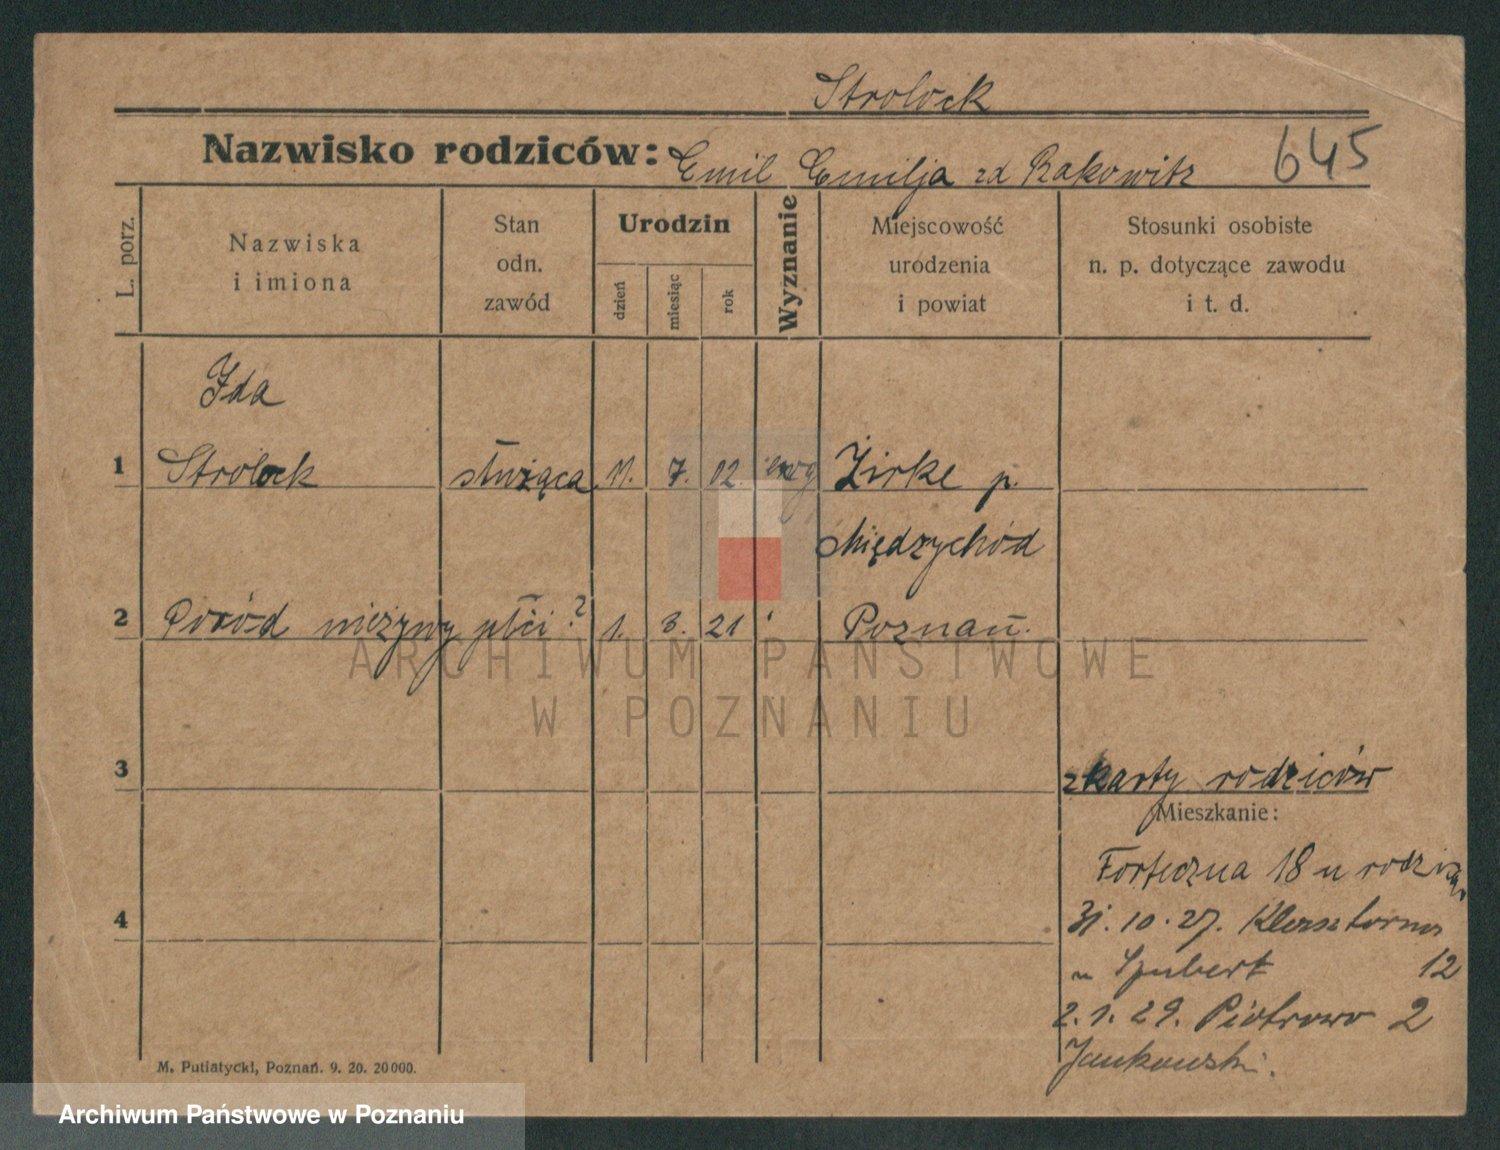 Strolock
Nazwisko rodziców: Emil Emilja zd Rakowitz 645
L. porz.
Nazwiska
i imiona
Stan
odn.
zawód
Urodzin
dzień
miesiąc
rok
Wyznanie
Miejscowość
urodzenia
i powiat
Stosunki osobiste
n. p. dotyczące zawodu
i t. d.
Ida
1 Strolock służąca 11. 7. 02. ewg Zirke p.
Międzychód
2 Poród nieżywy płci ? 1. 3. 21 Poznań.
3 z karty rodziców
Mieszkanie:
Forteczna 18 u rodziców
4 31. 10. 27. Klasztorna
u 12
2. 1. 29. Piotrowo 2
Jankowski.
M. Putiatycki, Poznań. 9. 20. 20000.
ARCHIWUM PAŃSTWOWE
W POZNANIU
Archiwum Państwowe w Poznaniu